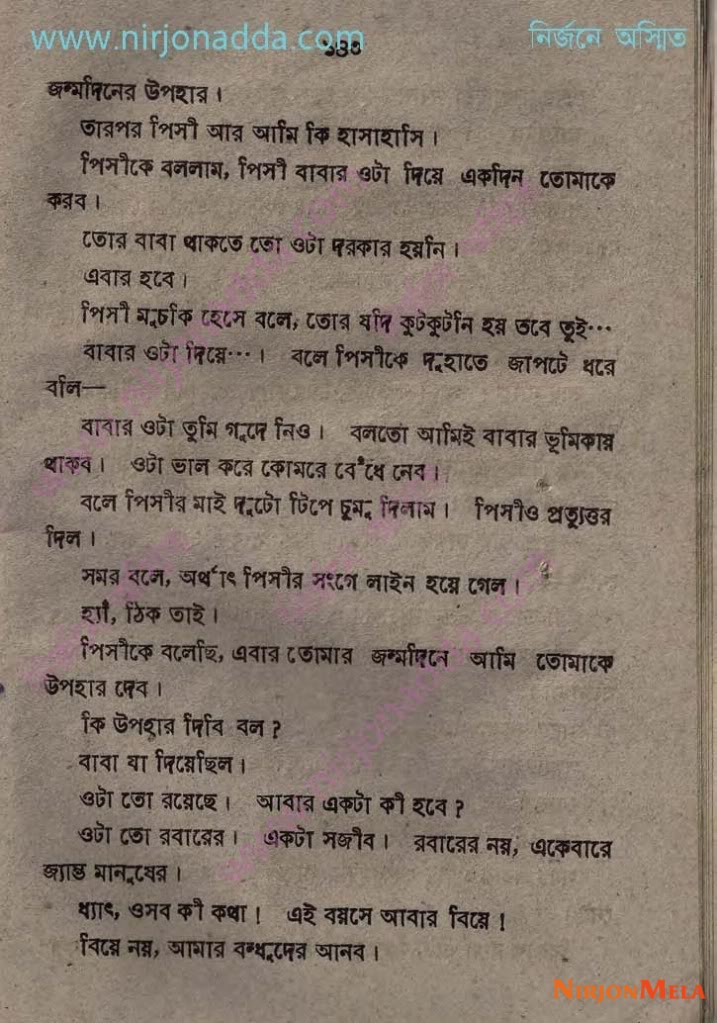 www.nirjonadda.com
১৪০
নির্জনে অস্মিত
জন্মদিনের উপহার।
তারপর পিসী আর আমি কি হাসাহাসি।
পিসীকে বললাম, পিসী বাবার ওটা দিয়ে একদিন তোমাকে
করব।
তোর বাবা থাকতে তো ওটা দরকার হয়নি।
এবার হবে।
পিসী মুচকি হেসে বলে, তোর যদি কুটকুটনি হয় তবে তুই···
বাবার ওটা দিয়ে···। বলে পিসীকে দুহাতে জাপটে ধরে
বলি—
বাবার ওটা তুমি গুদে নিও। বলতো আমিই বাবার ভূমিকায়
থাকব। ওটা ভাল করে কোমরে বেঁধে নেব।
বলে পিসীর মাই দুটো টিপে চুমু দিলাম। পিসীও প্রত্যুত্তর
দিল।
সমর বলে, অর্থাৎ পিসীর সংগে লাইন হয়ে গেল।
হ্যাঁ, ঠিক তাই।
পিসীকে বলেছি, এবার তোমার জন্মদিনে আমি তোমাকে
উপহার দেব।
কি উপহার দিবি বল?
বাবা যা দিয়েছিল।
ওটা তো রয়েছে। আবার একটা কী হবে?
ওটা তো রবারের। একটা সজীব। রবারের নয়, একেবারে
জ্যান্ত মানুষের।
ধ্যাৎ, ওসব কী কথা! এই বয়সে আবার বিয়ে!
বিয়ে নয়, আমার বন্ধুদের আনব।
NIRJONMELA